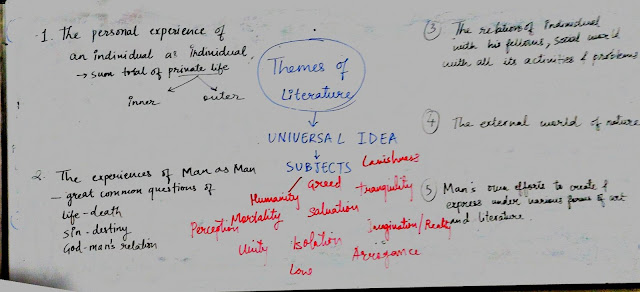 1. The personal experience of
an individual as individual.
→ sum total of private life
inner outer
2. The experiences of Man as Man
- great common questions of
life - death
sin - destiny
God - man's relation
Themes of
Literature
↓
UNIVERSAL IDEA
↓
SUBJECTS
Lavishness
Humanity Greed tranquility
Perception Mortality Salvation
Unity Isolation Imagination/Reality
Love Arrogance
3 The relation of Individual
with his fellows, social world
with all its activities & problems
4 The external world of nature
5 Man's own efforts to create &
express under various forms of art
and literature.